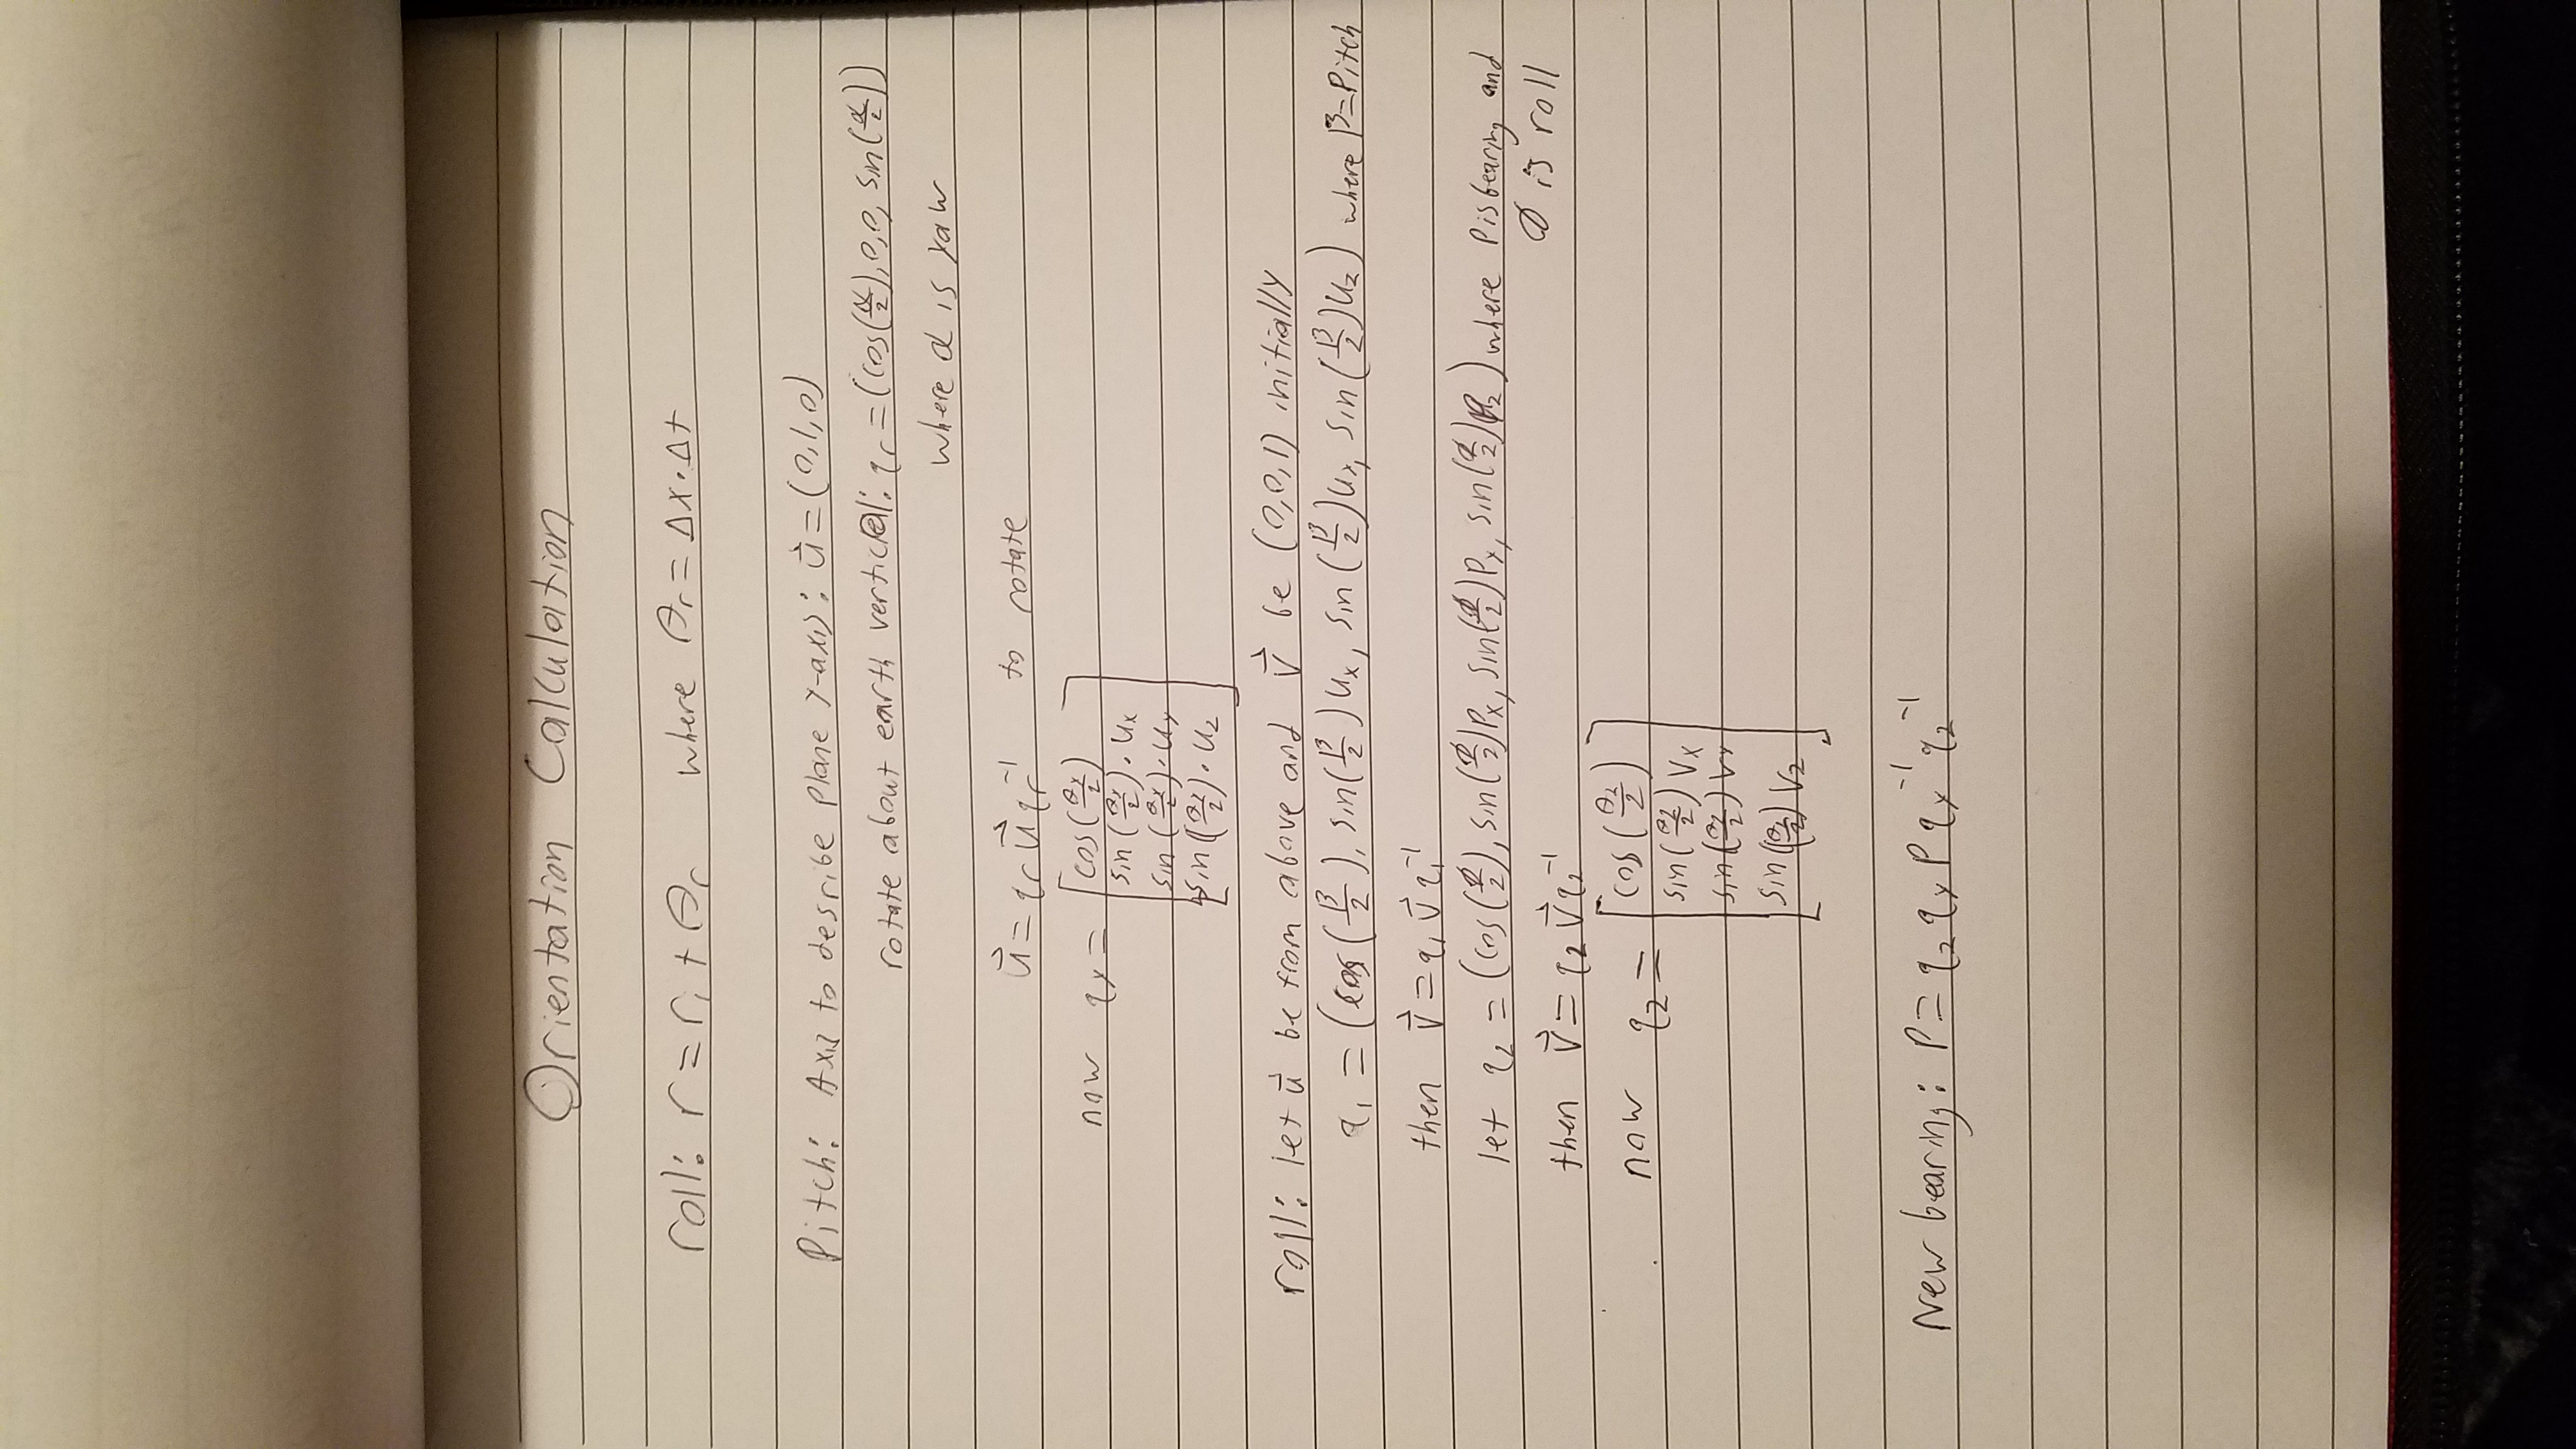 Orientation Calculation
roll: r = r₁ + θr where θr = Δx · Δt
Pitch: Axis to desribe plane y-axis: u⃗ = (0,1,0)
rotate about earth vertical: qr = (cos(α/2), 0, 0, sin(α/2))
where α is yaw
u⃗ = qr u⃗ qr⁻¹ to rotate
now qy = [cos(θy/2)
sin(θy/2) · ux
sin(θy/2) · uy
sin(θy/2) · uz]
roll: let u⃗ be from above and v⃗ be (0,0,1) initially
q₁ = (cos(β/2), sin(β/2)ux, sin(β/2)uy, sin(β/2)uz) where β=Pitch
then v⃗ = q₁ v⃗ q₁⁻¹
let q₂ = (cos(φ/2), sin(φ/2)Px, sin(φ/2)Py, sin(φ/2)Pz) where P is bearing and
φ is roll
then v⃗ = q₂ v⃗ q₂⁻¹
now qz = [cos(θz/2)
sin(θz/2) Vx
sin(θz/2) Vy
sin(θz/2) Vz]
New bearing: P = qz qy P qy⁻¹ qz⁻¹